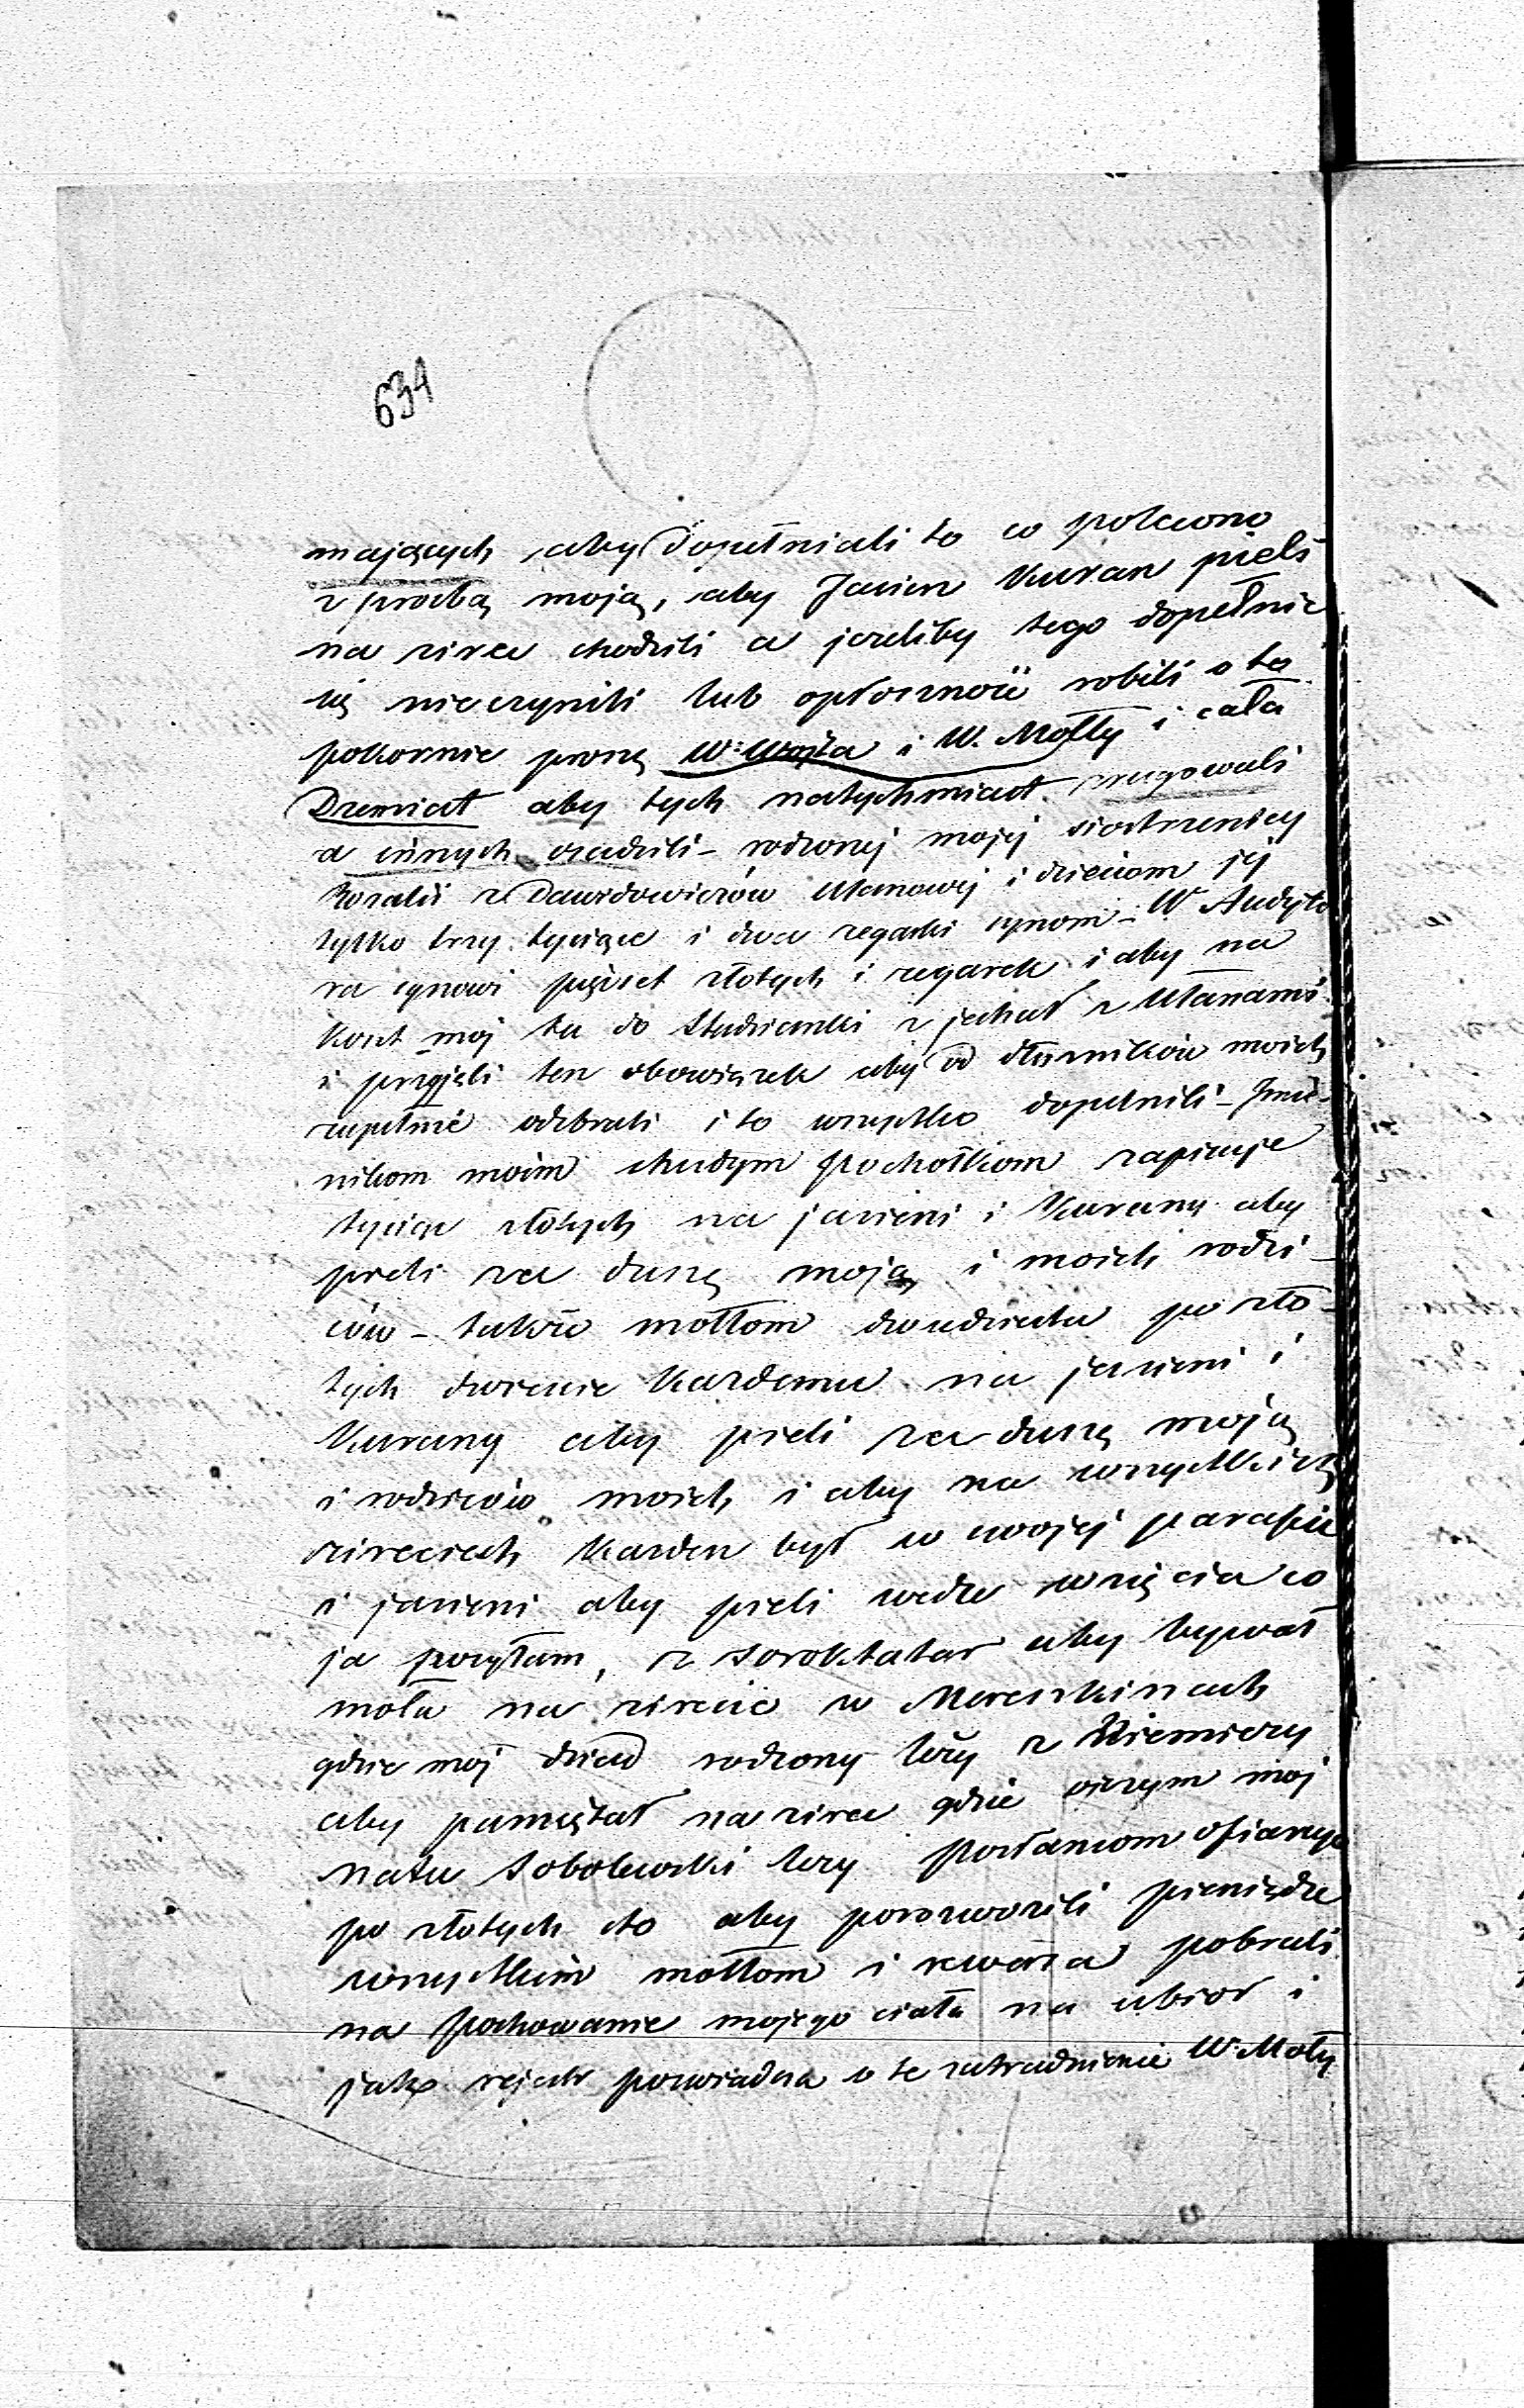 634
mających aby dopełniali to co polecono
z prozbą moją, aby Jasien Kuran pieli
na zirea chodzili a jezeliby tego dopełnie
nię nieczynili lub opłoszność robili o to
pokornie proszę W: Wojta i W. Mołły i cała
Dzemiat aby tych natychmiast rugowali
a innych osadzili - rodzonej mojej siostrzenicy
Rozalii z Dawidowiczów Ułanowej i dzieciom jej
tylko trzy tysiące i dwa zegarki synom - W Audyto
ra synowi pięćset złotych i zegarek i aby na
koszt moj tu do Studzianki zjechał z Ułanami
i przyjęli ten obowiązek aby od dłużników moich
zupełnie odebrali i to wszystko dopełnili - Imie
nikom moim chudym pachołkom zapisuje
tysiąc złotych na jasieni i Kurany aby
pieli za duszę moją i moich rodzi-
ców - takze mołłom dwadziestu po zło-
tych dwiescie kazdemu na jasieni i
Kurany aby pieli za duszę moją
i rodziców moich, i aby na wszystkich
zireciech kazden był w swojej parafii
i jasieni aby pieli wedle wzięcia co
ja posyłam, z Soroktatar aby bywał
moła na zirecie w Mereszkinach
gdzie moj dziad rodzony lezy z Niemiezy
aby pamiętał na zirea gdzie ojczym moj
natu Sobolewski lezy Posłańcom ofiaruje
po złotych sto aby porozwozili pieniądze
wszystkim mołłom i rewersa pobrali
na pochowanie mojego ciała na ubior i
jako rejestr poswiadcza o te zatrudnienie W. Moły